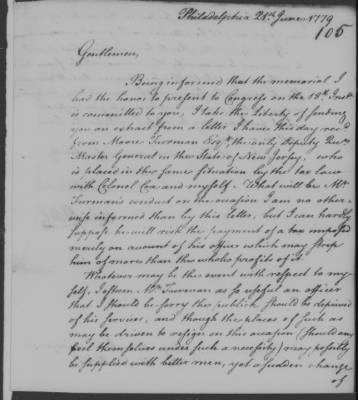 Philadelphia 21st June 1779
105
Gentlemen,
Being informed that the memorial I
had the honor to present to Congress on the 18th Inst.
is committed to you, I take the Liberty of sending
you an extract from a letter I have this day rec'd
from Moore Furman Esqr. the only Deputy Quar.
Master General in the State of New Jersey, who
is placed in the same situation by the tax law
with Colonel Cox and myself. What will be Mr.
Furman's conduct on the occasion I am no other-
wise informed than by this letter, but I can hardly
suppose he will risk the payment of a tax imposed
merely on account of his office which may strip
him of more than the whole profits of it.
Whatever may be the event with respect to my
self, I esteem Mr. Furman as so useful an officer
that I should be sorry the publick should be deprived
of his services, and though the places of such as
may be driven to resign on this occasion (should any
feel themselves under such a necessity) may possibly
be supplied with better men, yet a sudden change
of